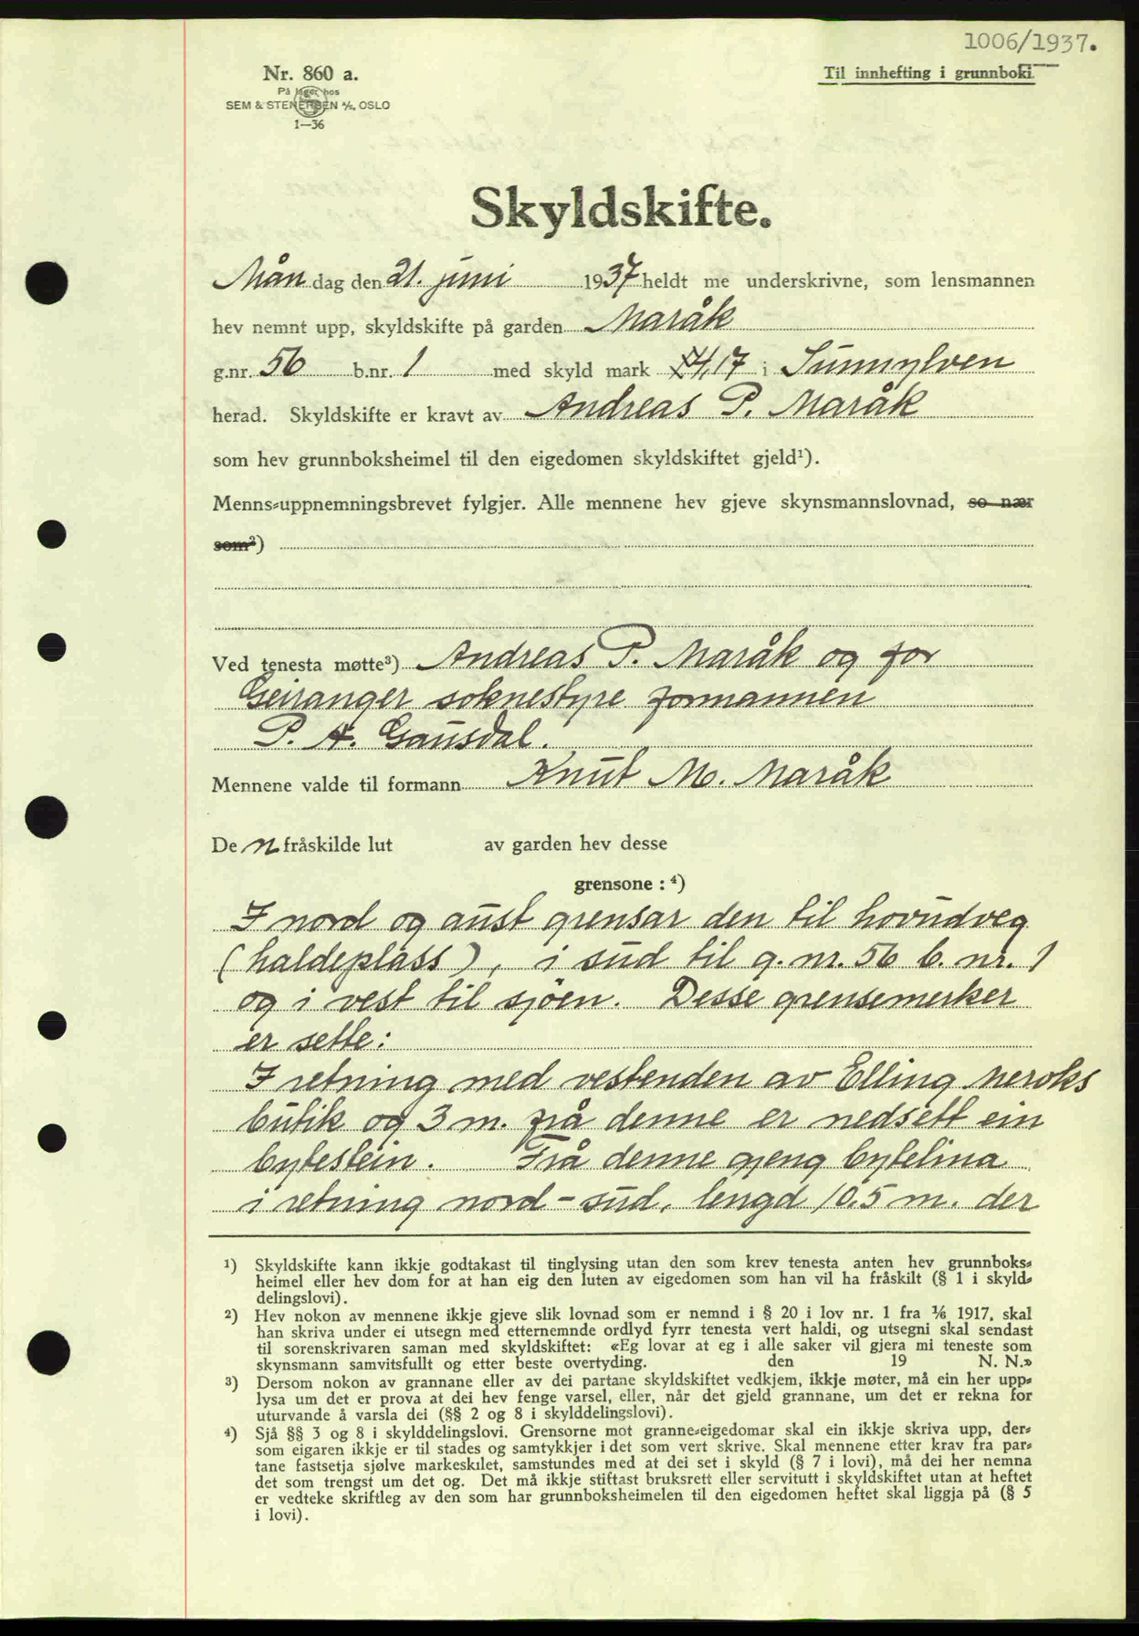 1006/1937.
Nr. 860 a.
Til innhefting i grunnboki.
På lager hos
SEM & STENERSEN A/S, OSLO
1—36
Skyldskifte.
Mån dag den 21. juni 1937 heldt me underskrivne, som lensmannen
hev nemnt upp, skyldskifte på garden Maråk
g.nr. 56 b.nr. 1 med skyld mark 4,17 i Sunnylven
herad. Skyldskifte er kravt av Andreas P. Maråk
som hev grunnboksheimel til den eigedomen skyldskiftet gjeld¹).
Menns-uppnemningsbrevet fylgjer. Alle mennene hev gjeve skynsmannslovnad, so nær
som²)
Ved tenesta møtte³) Andreas P. Maråk og for
Geiranger soknestyre formannen
P. A. Gausdal.
Mennene valde til formann Knut M. Maråk
De n fråskilde lut av garden hev desse
grensone : ⁴)
I nord og aust grensar den til hovudveg
(haldeplass), i sud til g. nr. 56 b. nr. 1
og i vest til sjøen. Desse grensemerker
er sette:
I retning med vestenden av Elling Meroks
butik og 3 m. frå denne er nedsett ein
bytestein. Frå denne gjeng bytelina
i retning nord - sud, lengd 10.5 m. der
¹) Skyldskifte kann ikkje godtakast til tinglysing utan den som krev tenesta anten hev grunnboks-
heimel eller hev dom for at han eig den luten av eigedomen som han vil ha fråskilt (§ 1 i skyld-
delingslovi).
²) Hev nokon av mennene ikkje gjeve slik lovnad som er nemnd i § 20 i lov nr. 1 fra ¹/₆ 1917, skal
han skriva under ei utsegn med etternemnde ordlyd fyrr tenesta vert haldi, og utsegni skal sendast
til sorenskrivaren saman med skyldskiftet: «Eg lovar at eg i alle saker vil gjera mi teneste som
skynsmann samvitsfullt og etter beste overtyding. den 19 N. N.»
³) Dersom nokon av grannane eller av dei partane skyldskiftet vedkjem, ikkje møter, må ein her upp-
lysa um det er prova at dei hev fenge varsel, eller, når det gjeld grannane, um det er rekna for
uturvande å varsla dei (§§ 2 og 8 i skylddelingslovi).
⁴) Sjå §§ 3 og 8 i skylddelingslovi. Grensorne mot granne-eigedomar skal ein ikkje skriva upp, der-
som eigaren ikkje er til stades og samtykkjer i det som vert skrive. Skal mennene etter krav fra par-
tane fastsetja sjølve markeskilet, samstundes med at dei set i skyld (§ 7 i lovi), må dei her nemna
det som trengst um det og. Det må ikkje stiftast bruksrett eller servitutt i skyldskiftet utan at heftet
er vedteke skriftleg av den som har grunnboksheimelen til den eigedomen heftet skal liggja på (§ 5
i lovi).